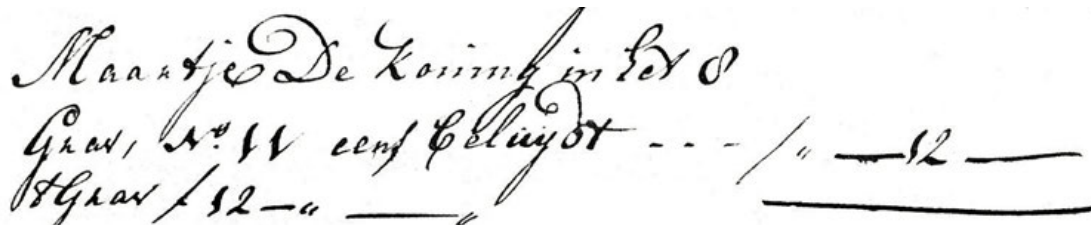 Maartje De Koning in het 8
Graf, No. 11 eens beluydt - - - f " — 12 —
t Graf f 12 — " — "